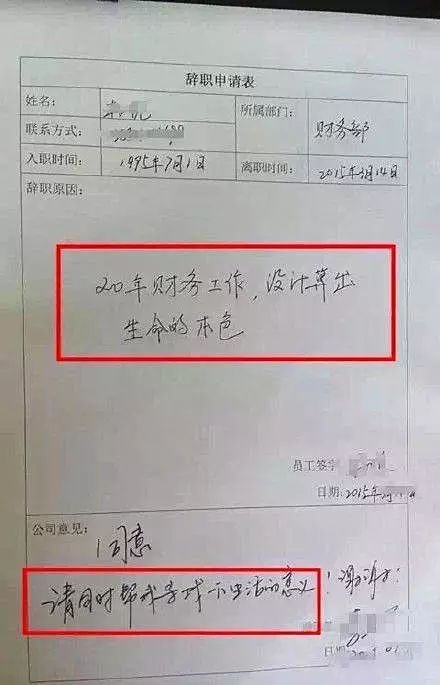 辞职申请表
姓名:
所属部门:
财务部
联系方式:
入职时间:
1995年7月1日
离职时间:
2015年3月14日
辞职原因:
20年财务工作,没计算出
生命的本色
员工签字
日期:2015年
公司意见:
同意
请同时帮我寻找一下生活的意义!谢谢!
日期